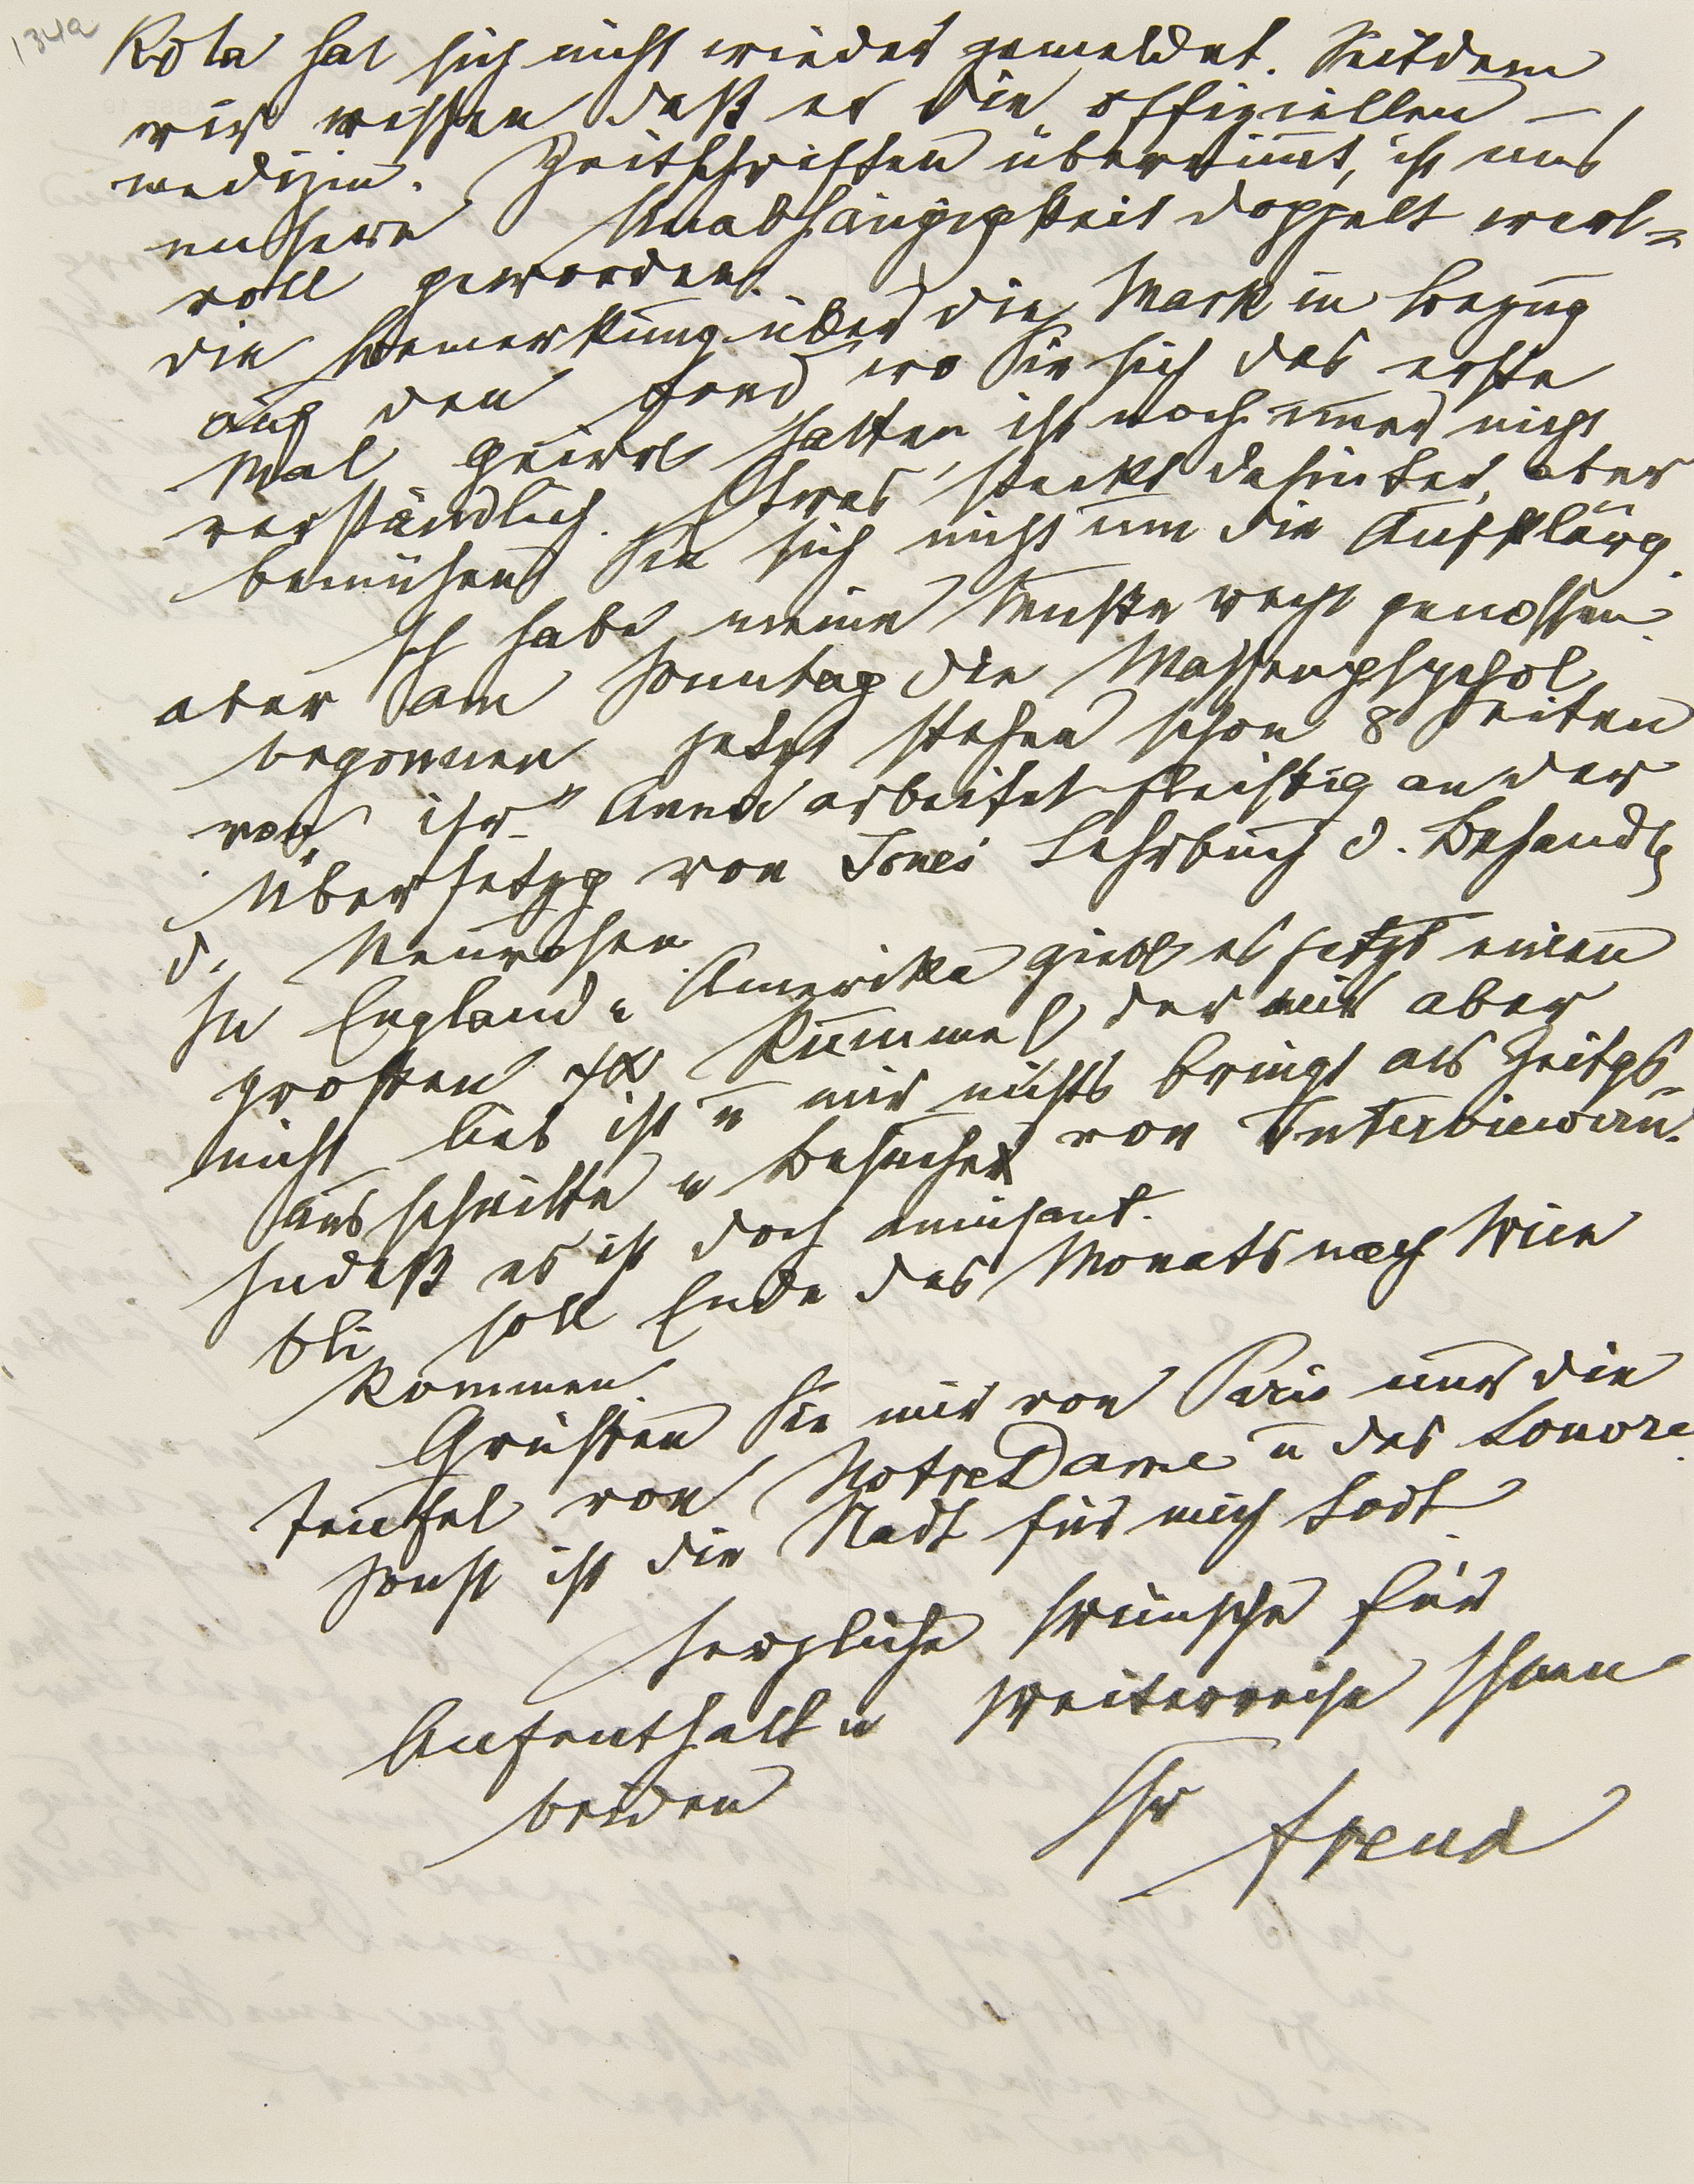 134a
Kola hat sich nicht wieder gemeldet. Seitdem
wir wissen daß er die offiziellen –
medizin. Zeitschriften übernimmt, ist uns
unsere Unabhängigkeit doppelt wert-
voll geworden.
Die Bemerkung über die Mark in bezug
auf den Fond wo Sie sich das erste
Mal geirrt hatten, ist noch immer nicht
verständlich. Etwas steckt dahinter, aber
bemühen Sie sich nicht um die Aufklärg.
Ich habe meine Muße recht genossen
aber am Sonntag die Massenpsychol
begonnen jetzt stehen schon 8 Seiten
von ihr. Anna arbeitet fleißig an der
Übersetzg von Jones Lehrbuch d. Behandlg
d. Neurosen.
In England u Amerika giebt es jetzt einen
großen ψα Rummel, der mir aber
nicht lieb ist u mir nichts bringt als Zeitgs-
ausschnitte u Besuche von Interviewern.
Indeß es ist doch amüsant.
Oli soll Ende des Monats nach Wien
kommen.
Grüßen Sie mir von Paris nur die
Teufel von Notre Dame u das Louvre.
Sonst ist die Stadt für mich todt.
Herzliche Wünsche für
Aufenthalt u Weiterreise Ihnen
beiden
Ihr Freud